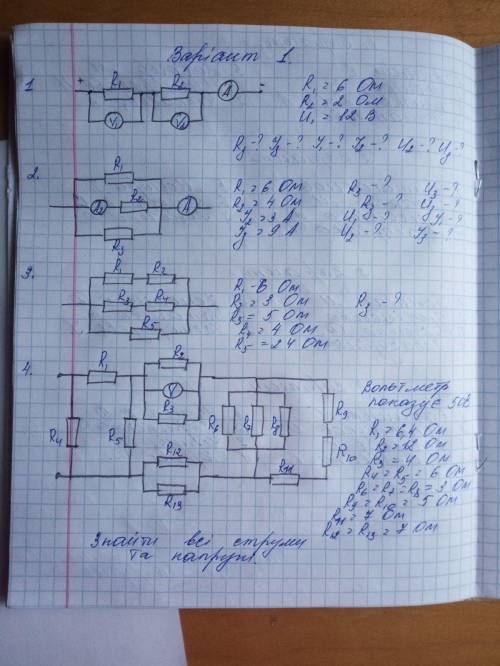 Варіант 1.
1
+ R₁ R₂ A -
V₁ V₂
R₁ = 6 Ом
R₂ = 2 Ом
U₁ = 12 В
R₃-? У₃-? У₁-? У₂-? U₂-? U₃-?
2.
R₁
A₂ R₂ A
R₃
R₁ = 6 Ом R₃ - ? U₃ - ?
R₂ = 4 Ом
У₂ = 3 А
У₃ = 9 А
3.
R₁ R₂
R₃ R₄
R₅
R₁ - 6 Ом
R₂ = 3 Ом R₃ - ?
R₃ = 5 Ом
R₄ = 4 Ом
R₅ = 24 Ом
4.
R₁ R₂
V
R₃
R₄ R₅ R₆ R₇ R₈ R₉
R₁₀
R₁₂ R₁₁
R₁₃
Вольтметр
показує 50В
R₁ = 6,4 Ом
R₂ = 12 Ом
R₃ = 4 Ом
R₄ = R₅ = 6 Ом
R₆ = R₇ = R₈ = 3 Ом
R₉ = R₁₀ = 5 Ом
R₁₁ = 7 Ом
R₁₂ = R₁₃ = 7 Ом
Знайти всі струми
та напруги.